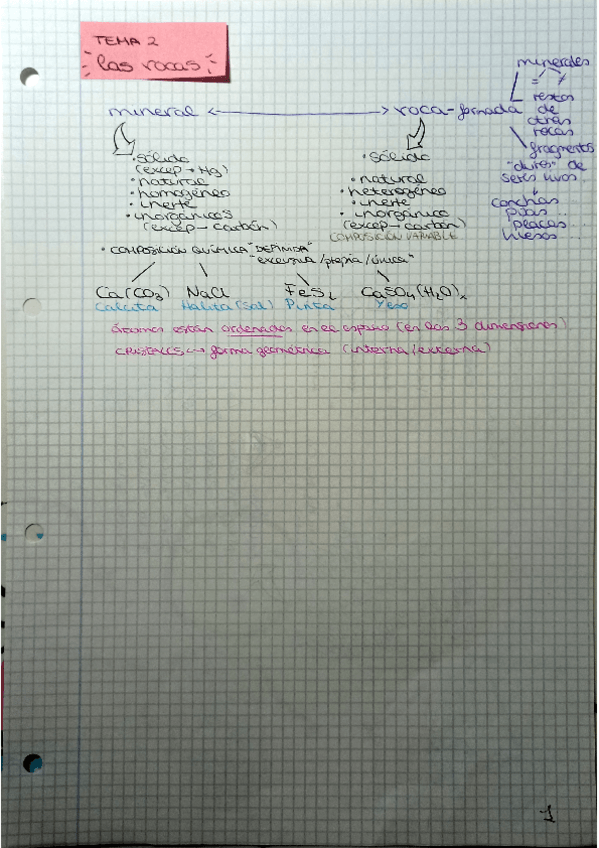 TEMA 2
las rocas
mineral <-----> roca-formada
minerales
= ≠
restos
de
otras
rocas
fragmentos
"duros" de
seres vivos
conchas
púas...
placas...
huesos
· sólido
(excep → Hg)
· natural
· homogéneo
· inerte
· inorgánicos
(excep → carbón)
· sólido
· natural
· heterogéneo
· inerte
· inorgánico
(excep → carbón)
COMPOSICIÓN VARIABLE
· COMPOSICIÓN QUÍMICA "DEFINIDA"
"exclusiva/propia/única"
Ca(CO3) NaCl FeS2 CaSO4(H2O)x
Calcita Halita (sal) Pirita Yeso
átomos están ordenados en el espacio (en las 3 dimensiones)
CRISTALES → forma geométrica (interna/externa)
1